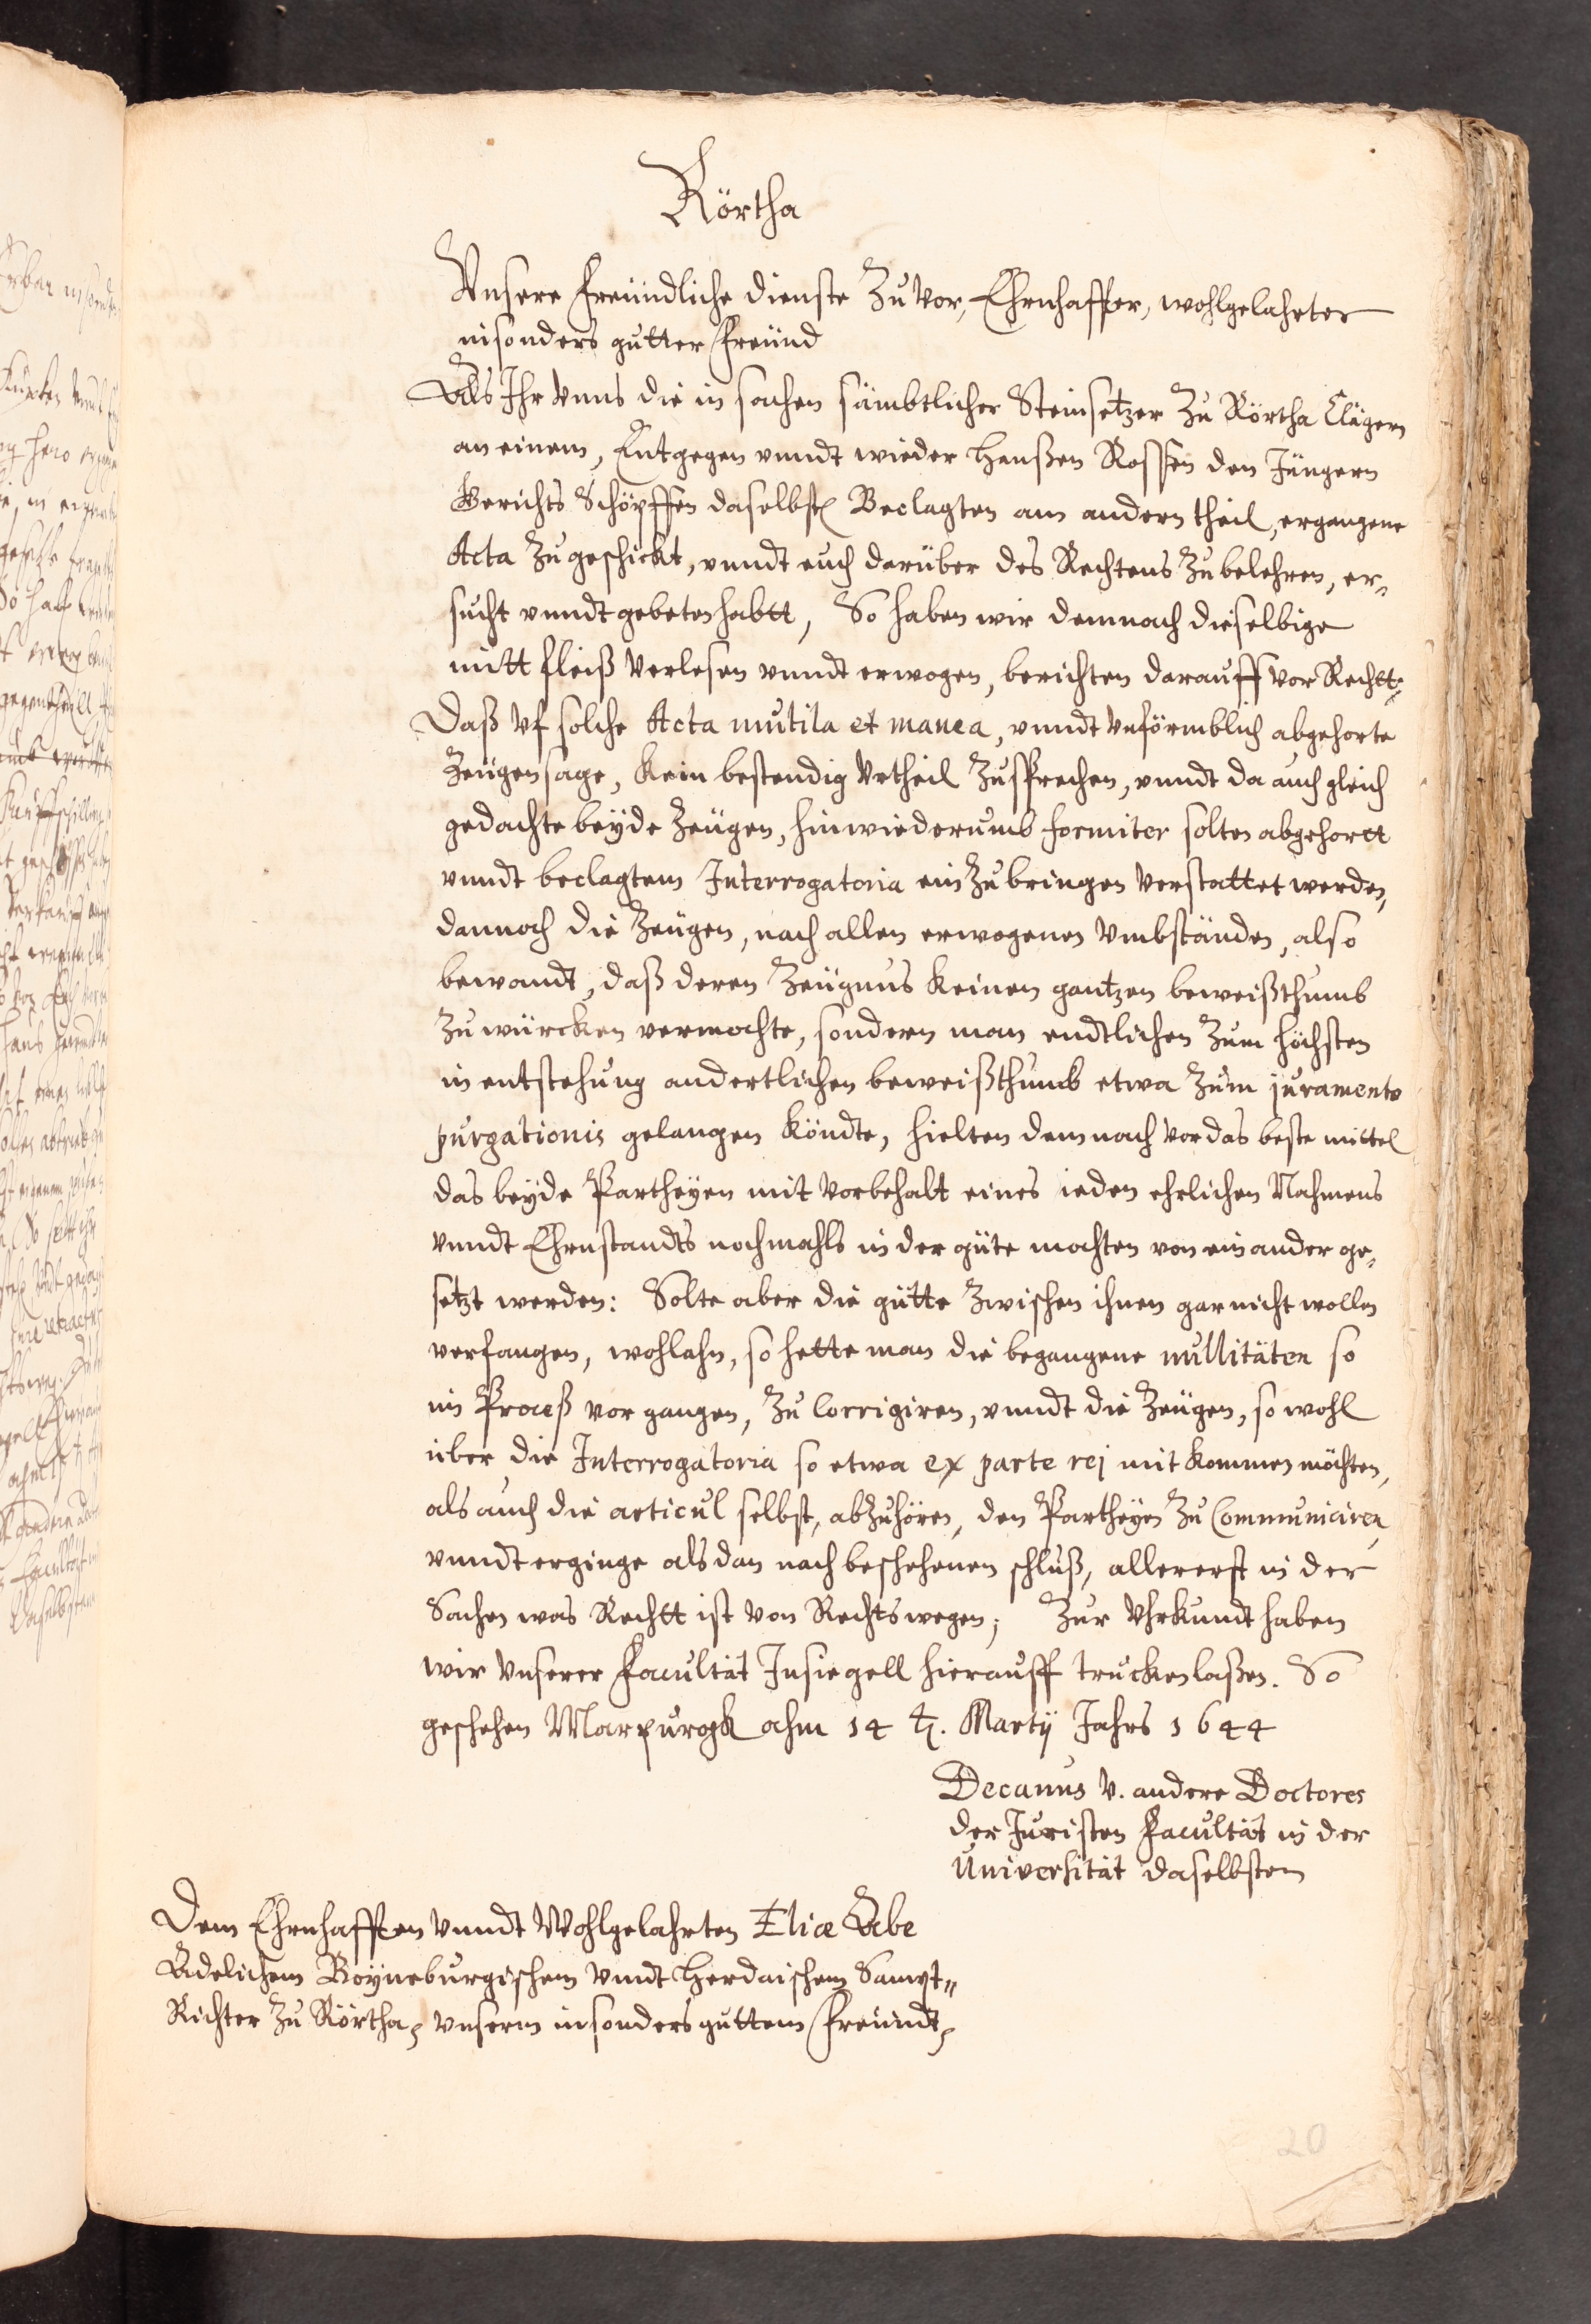 Rörtha
Vnsere freundliche dienste Zuvor, Ehrnhaffter, wohlgelahrter
insonders gutter freund
Als Ihr vnns die in sachen sämbtlicher Steinsetzer Zu Rörtha Clägern
an einem, Entgegen vnndt wieder Hanßen Rossen den Jüngern
Gerichts Schöpffen daselbsten Beclagten am andern theil, ergangene
Acta Zugeschickt, vnndt euch darüber des Rechtens Zubelehren, er„
sucht vnndt gebeten habtt, So haben wir demnach dieselbige
mitt fleiß verlesen vnndt erwogen, berichten darauff vor Rechtt,
Daß vf solche Acta mutila et manca, vnndt vnförmblich abgehorte
Zeugensage, kein bestendig vrtheil Zusprechen, vnndt da auch gleich
gedachte beyde Zeugen, hinwiederumb formiter solten abgehortt
vnndt beclagtem Interrogatoria einZubringen verstattet werden,
dannoch die Zeugen, nach allen erwogenen vmbständen, also
bewandt, daß deren Zeugnus keinen gantzen beweißthumb
Zu würcken vermochte, sondern man endtlichen Zum höchsten
in entstehung andertlichen beweißthumb etwa Zum juramento
purgationis gelangen köndte, hielten demnach vor das beste mittel
das beyde Partheyen mit vorbehalt eines ieden ehrlichen Nahmens
vnndt Ehrnstandts nochmahls in der güte mochten von einander ge„
setzt werden: Solte aber die gütte Zwischen ihnen gar nicht wollen
verfangen, wohlahn, so hette man die begangene nullitäten so
im Proceß vorgangen, Zu Corrigiren, vnndt die Zeugen, so wohl
über die Interrogatoria so etwa ex parte rej mit kommen möchten,
als auch die articul selbst, abZuhören, den Partheyen Zu Communiciren,
vnndt erginge alsdan nach beschehenen schluß, allererst in der
Sachen was Rechtt ist von Rechtswegen; Zur Vhrkundt haben
wir vnserer Facultät Insiegell hierauff trucken laßen. So
geschehen Marpurgk ahm 14 t. Martij Jahrs 1644
Decanus v. andere Doctores
der Juristen Facultät in der
Universität daselbsten
Dem Ehrnhafften vnndt Wohlgelahrten Eliæ Abe
Adelichem Boyneburgischem vnndt Herdaischem Sampt„
Richter Zu Rörtha, vnserm insonders guttem freundt,
20